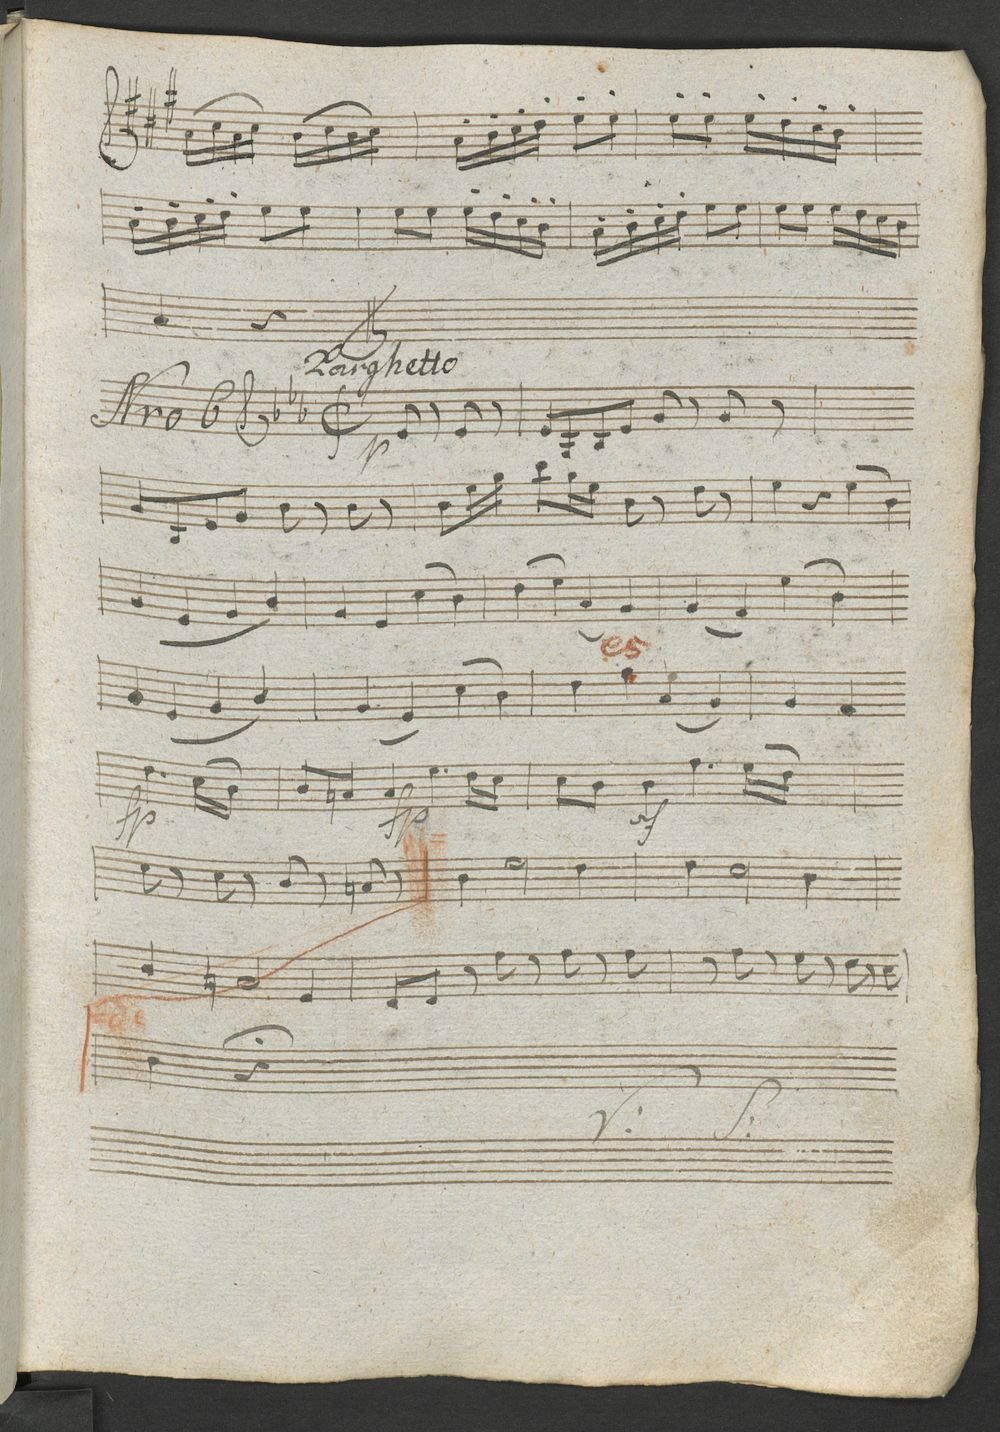 Larghetto
Nro 6
p
es
fp fp sf
vi=
=de
V: S: